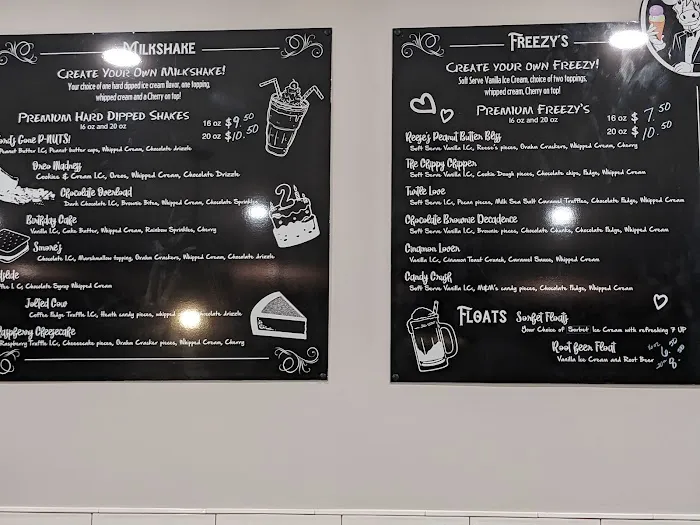 MILKSHAKE
CREATE YOUR OWN MILKSHAKE!
Your choice of one hard dipped ice cream flavor, one topping,
whipped cream and a Cherry on top!
PREMIUM HARD DIPPED SHAKES
16 oz and 20 oz
16 oz $ 9.50
20 oz $ 10.50
Gone P-NUTS!
Peanut Butter I.C, Peanut butter cups, Whipped Cream, Chocolate drizzle
Oreo Madness
Cookies & Cream I.C, Oreos, Whipped Cream, Chocolate Drizzle
Chocolate Overload
Dark Chocolate I.C, Brownie Bites, Whipped Cream, Chocolate Sprinkles
Birthday Cake
Vanilla I.C, Cake Batter, Whipped Cream, Rainbow Sprinkles, Cherry
Smore's
Chocolate I.C, Marshmallow topping, Graham Crackers, Whipped Cream, Chocolate drizzle
I.C, Chocolate Syrup Whipped Cream
Jolted Cow
Coffee Fudge Truffle I.C, Heath candy pieces, whipped chocolate drizzle
Raspberry Cheesecake
Raspberry Truffle I.C, Cheesecake pieces, Graham Cracker pieces, Whipped Cream, Cherry
2
FREEZY'S
CREATE YOUR OWN FREEZY!
Soft Serve Vanilla Ice Cream, choice of two toppings,
whipped cream, Cherry on top!
PREMIUM FREEZY'S
16 oz and 20 oz
16 oz $ 7.50
20 oz $ 10.50
Reese's Peanut Butter Bliss
Soft Serve Vanilla I.C, Reese's pieces, Graham Crackers, Whipped Cream, Cherry
The Chippy Chipper
Soft Serve Vanilla I.C, Cookie Dough pieces, Chocolate chips, Fudge, Whipped Cream
Turtle Love
Soft Serve Vanilla I.C, Pecan pieces, Milk Sea Salt Caramel Truffles, Chocolate Fudge, Whipped Cream
Chocolate Brownie Decadence
Soft Serve Vanilla I.C, Brownie pieces, Chocolate Chunks, Chocolate Fudge, Whipped Cream
Cinnamon Lover
Vanilla I.C, Cinnamon Toast Crunch, Caramel Sauce, Whipped Cream
Candy Crush
Soft Serve Vanilla I.C, M&M's candy pieces, Chocolate Fudge, Whipped Cream
FLOATS
Sorbet Floats
Your Choice of Sorbet Ice Cream with refreshing 7 UP
Root Beer Float
Vanilla Ice Cream and Root Beer